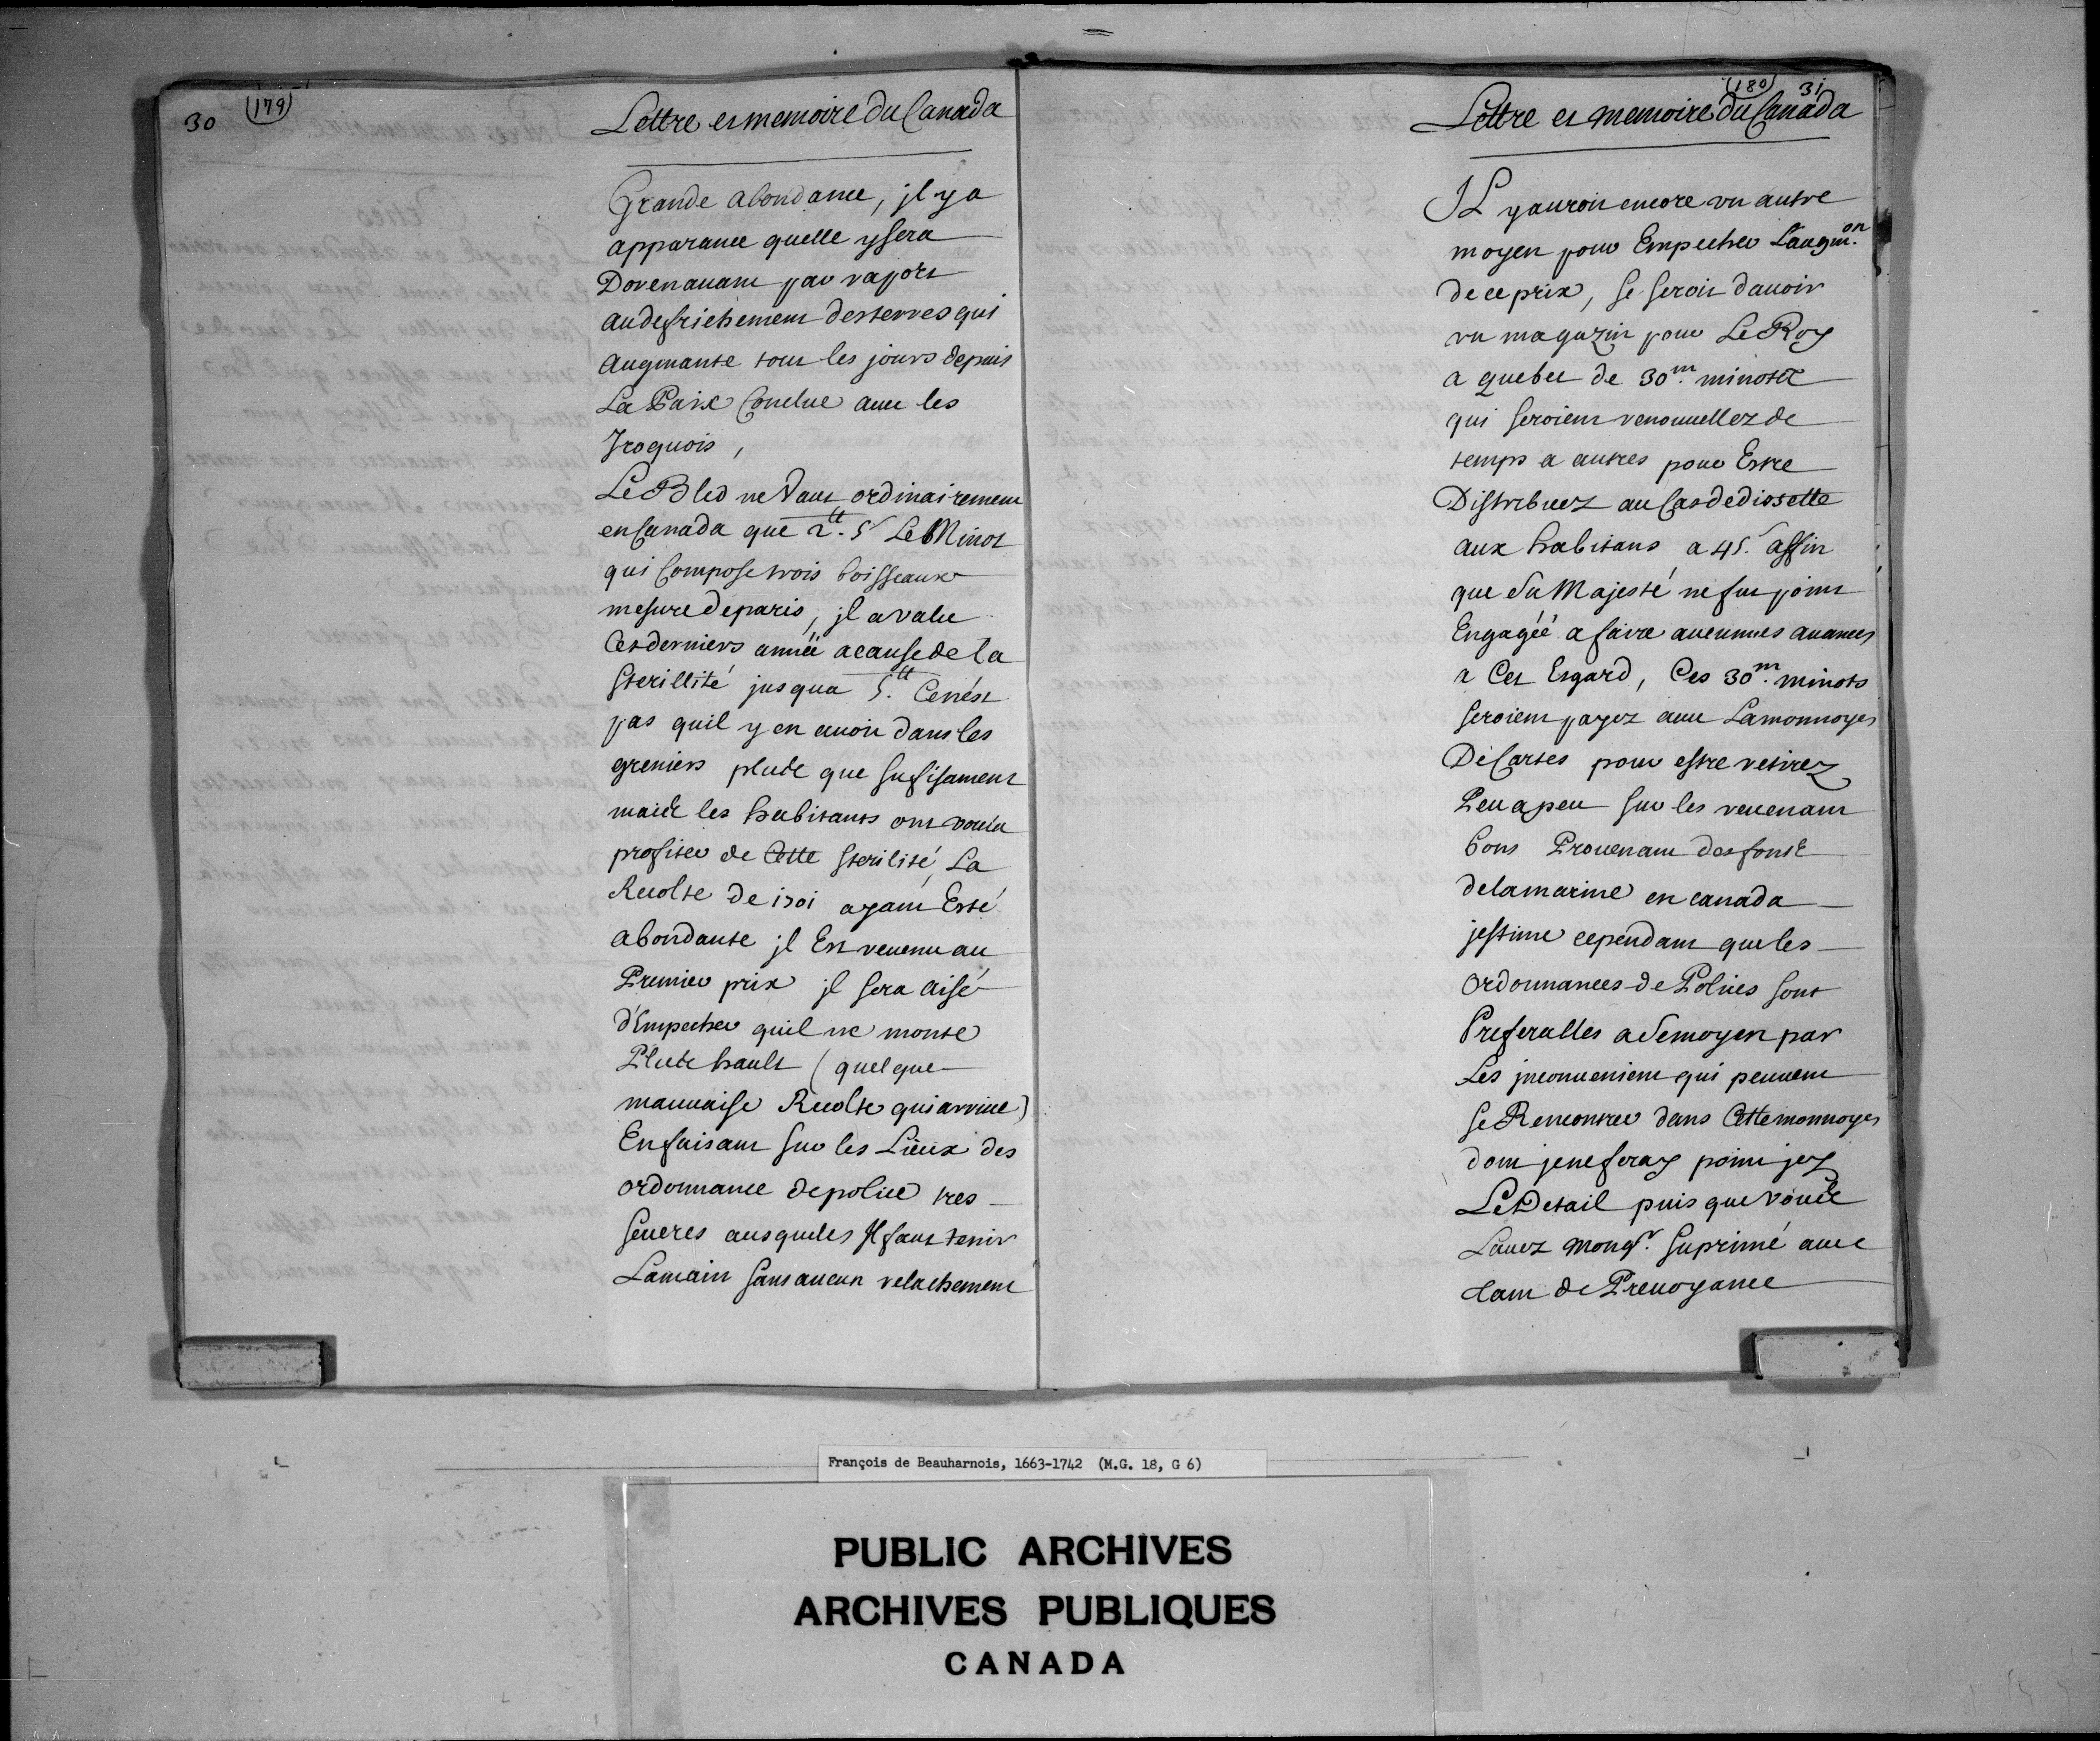 30 (179)
Lettre et memoire Du Canada
Grande abondance, jl y a
apparance quelle y sera
Dorenauant par raport
au defrichement des terres qui
augmante tout les jours depuis
La Paix Conclue auec les
Jroquois,
Le Bled ne Vaut ordinairement
en Canada que 2.tt 5s Le Minot
qui Compose trois boisseaux
mesure de paris, jl a valu
Ces derniers année a cause de la
sterillité jusqua 5.tt Ce nést
pas quil y en auoit dans les
greniers plus que sufisament
mais les habitants ont voulu
profiter de Cette sterilité, La
Recolte de 1701 ayant Esté
abondante jl Est reuenu au
Premier prix jl sera aisé
d'Empecher quil ne monte
Plus hault (quelque
mauuaise Recolte qui arriue)
En faisant sur les Lieux des
ordonnance de police tres
seueres ausqueles Jl faut tenir
La main sans aucun relachement
(180) 31
Lettre et memoire Du Canada
IL y auroit encore vn autre
moyen pour Empecher L'augm.on
de ce prix, se seroit dauoir
vn magazin pour Le Roy
a quebec de 30m. minots
qui seroient renouuellez de
temps a autres pour Estre
Distribuez au Cas de dissette
aux habitans a 45s. affin
que Sa Majesté ne fut point
Engagéé a faire aucunnes auances
a Cet Esgard, Ces 30m. minots
seroient payez auec La monnoyes
De Cartes pour estre retirez
Peu a peu sur les reuenant
bons Prouenant des fonds
de la marine en canada
jestime cependant que les
ordonnances de Polices sont
Preferalles a Se moyen par
Les jnconuenient qui peuuent
Se Rencontrer dans Cette monnoyes
dont je ne feray point jcy
Le Detail puis que vous
Lauez Mongr. Suprimé auec
tant de Preuoyance
François de Beauharnois, 1663-1742 (M.G. 18, G 6)
PUBLIC ARCHIVES
ARCHIVES PUBLIQUES
CANADA